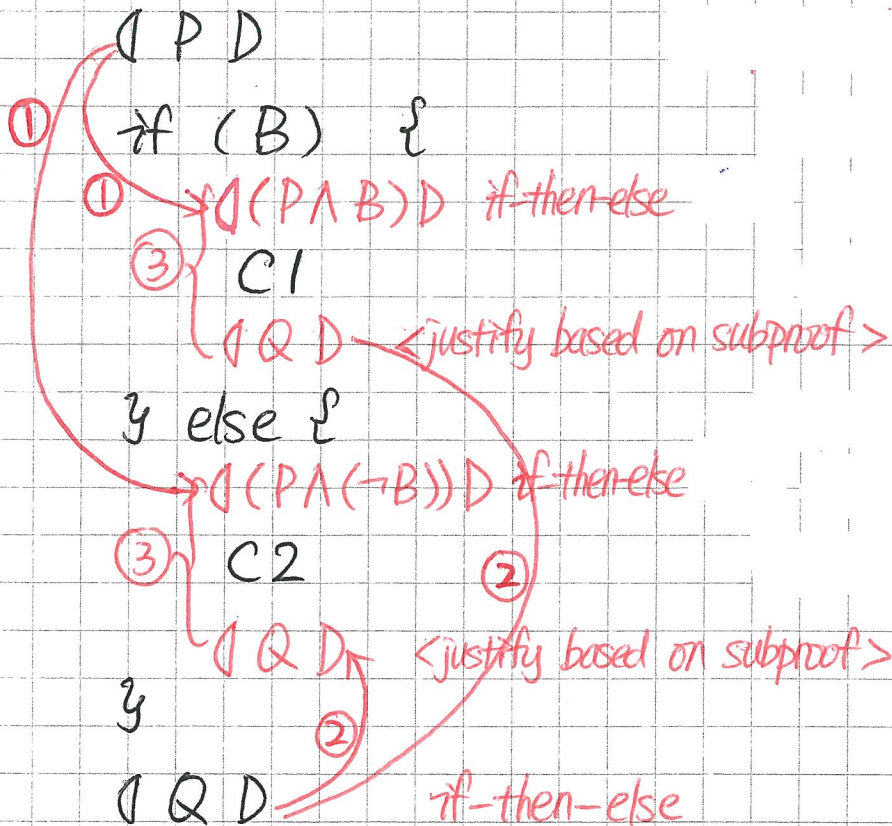 ⦇ P ⦈
①
if (B) {
① ⦇(P ∧ B)⦈ if-then-else
③ C1
⦇ Q ⦈ <justify based on subproof>
} else {
⦇(P ∧ (¬B))⦈ if-then-else
③ C2 ②
⦇ Q ⦈ <justify based on subproof>
}
②
⦇ Q ⦈ if-then-else